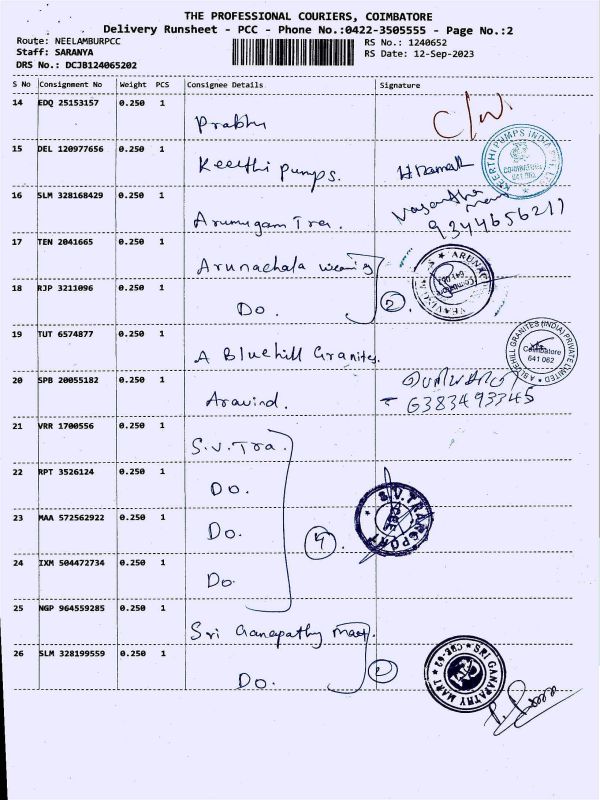 THE PROFESSIONAL COURIERS, COIMBATORE
Delivery Runsheet - PCC - Phone No.:0422-3505555 - Page No.:2
Route: NEELAMBURPCC
RS No.: 1240652
Staff: SARANYA
RS Date: 12-Sep-2023
DRS No.: DCJB124065202
S No Consignment No Weight PCS Consignee Details Signature
14 EDQ 25153157 0.250 1
Prabhu
C/W
15 DEL 120977656 0.250 1
Keerthi Pumps.
KEERTHI PUMPS INDIA PVT. LTD.
COIMBATORE
16 SLM 328168429 0.250 1
Arumugam Tra.
Vasantha
9344656211
17 TEN 2041665 0.250 1
Arunachala weaving
ARUNACHALA
Coimbatore
18 RJP 3211096 0.250 1
Do. 2
19 TUT 6574877 0.250 1
A Bluehill Granites.
A BLUEHILL GRANITES (INDIA) PRIVATE LIMITED
Coimbatore
641 062
20 SPB 20055182 0.250 1
Aravind.
6383493345
21 VRR 1700556 0.250 1
S.V. Tra.
22 RPT 3526124 0.250 1
Do.
S.V. TRANSPORT
CBE
23 MAA 572562922 0.250 1
Do. 4
24 IXM 504472734 0.250 1
Do.
25 NGP 964559285 0.250 1
Sri Ganapathy Mart.
26 SLM 328199559 0.250 1
Do. 2
SRI GANAPATHY MART
CBE-62